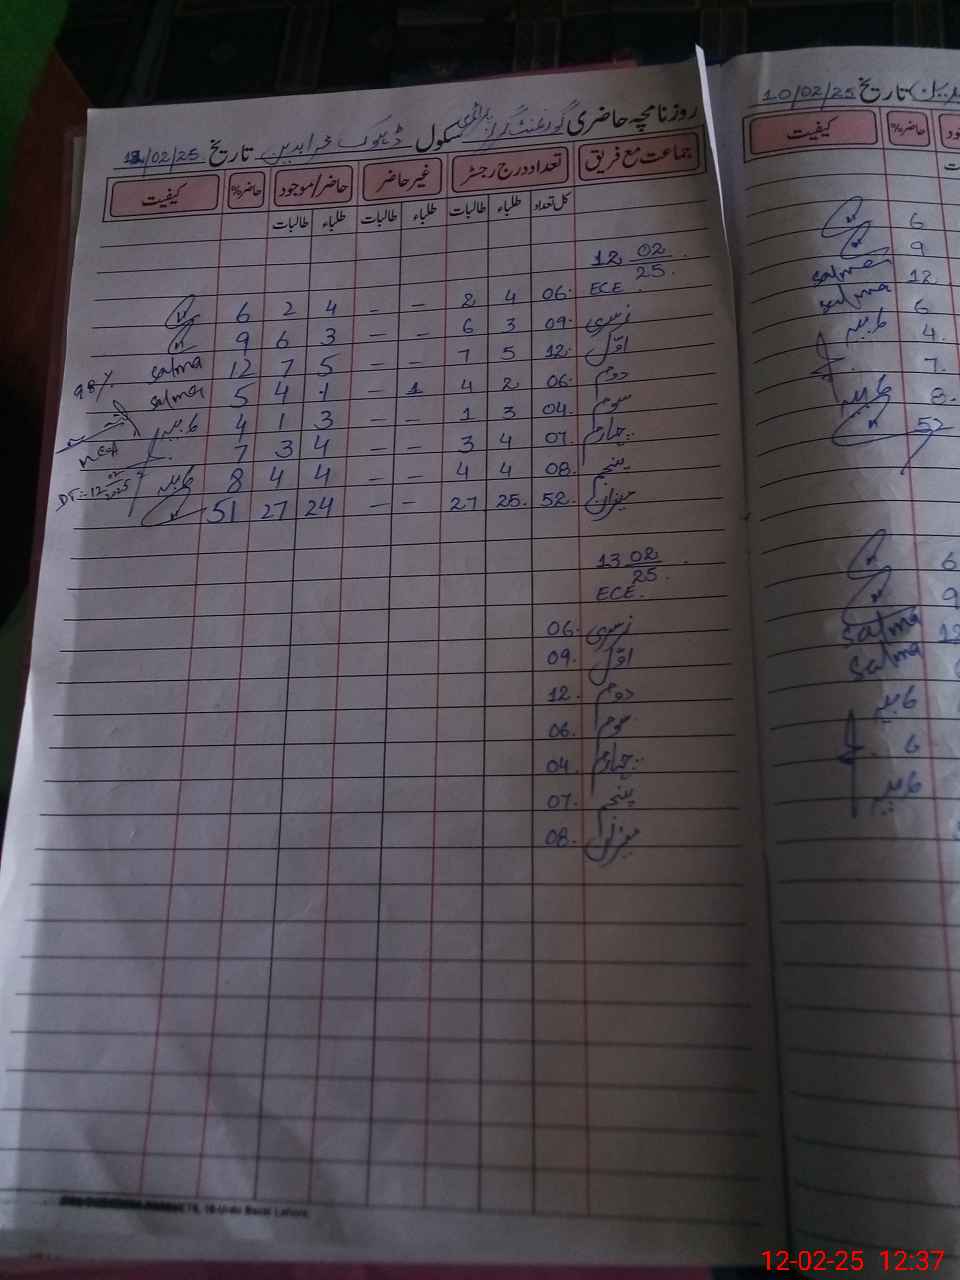 روزنامچہ حاضری گورنمنٹ گرلز پرائمری سکول ڈہوک تاریخ 12/02/25
جماعت مع فریق تعداد درج رجسٹر غیر حاضر حاضر/موجود حاضر% کیفیت
کل تعداد طلباء طالبات طلباء طالبات طلباء طالبات
12 02/25.
ECE. 06. 4 2 – – 4 2 6
نرسری 09. 3 6 – – 3 6 9
اوّل 12. 5 7 – – 5 7 12 Salma
دوم 06. 2 4 1 – 1 4 5 Salma 98%
سوم 04. 3 1 – – 3 1 4 طیبہ
چہارم 07. 4 3 – – 4 3 7
پنجم 08. 4 4 – – 4 4 8 طیبہ
میزان 52. 25. 27 – – 24 27 51
DT:-12/02/2025
13 02/25.
ECE.
نرسری 06.
اوّل 09.
دوم 12.
سوم 06.
چہارم 04.
پنجم 07.
میزان 08.
18-Urdu Bazar Lahore
تاریخ 10/02/25
حاضر% کیفیت
6
9
12 Salma
6 Salma
4. طیبہ
7.
8. طیبہ
52
6
9
12 Salma
Salma
طیبہ
6
طیبہ
12-02-25 12:37